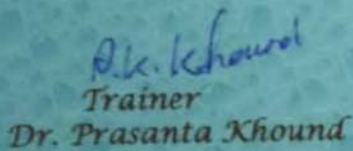 P.K. Khound
Trainer
Dr. Prasanta Khound